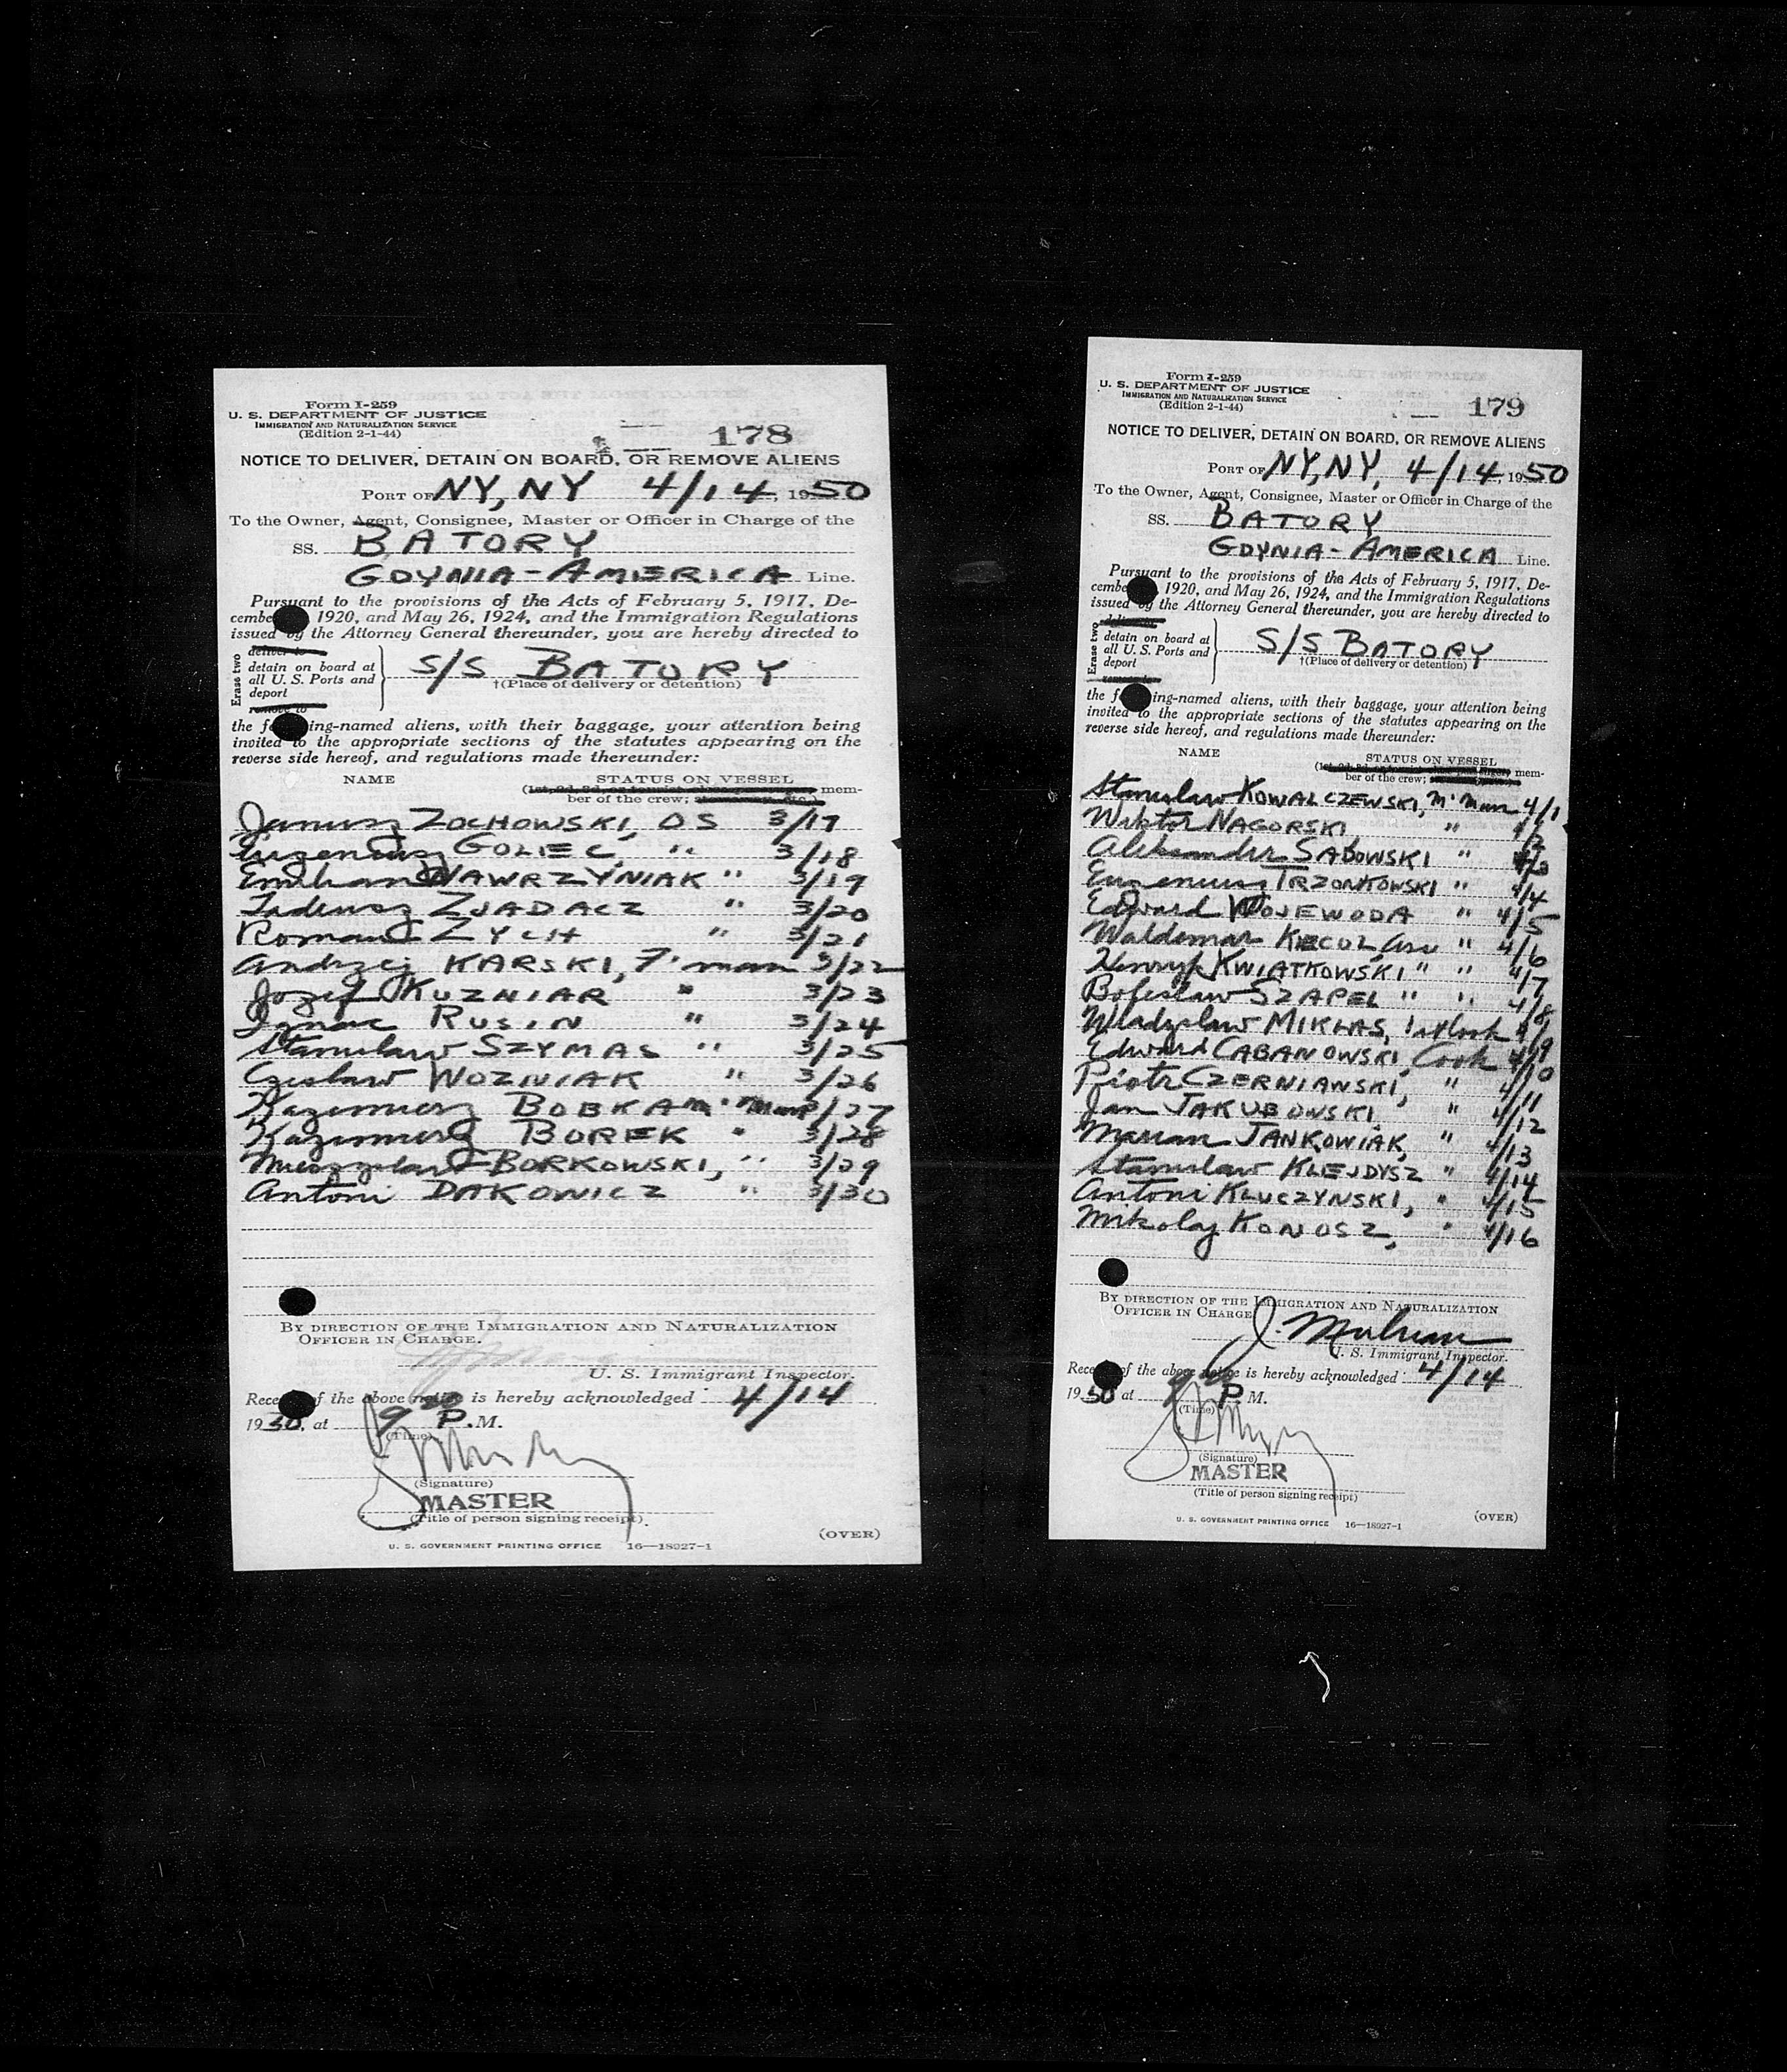 Form I-259
U. S. DEPARTMENT OF JUSTICE
IMMIGRATION AND NATURALIZATION SERVICE
(Edition 2-1-44)
178
NOTICE TO DELIVER, DETAIN ON BOARD, OR REMOVE ALIENS
PORT OF NY, NY 4/14, 1950
To the Owner, Agent, Consignee, Master or Officer in Charge of the
SS. BATORY
GDYNIA-AMERICA Line.
Pursuant to the provisions of the Acts of February 5, 1917, De-
cembe 1920, and May 26, 1924, and the Immigration Regulations
issued by the Attorney General thereunder, you are hereby directed to
Erase two
deliver to
detain on board at
all U. S. Ports and
deport
remove to
S/S BATORY
†(Place of delivery or detention)
the f ing-named aliens, with their baggage, your attention being
invited to the appropriate sections of the statutes appearing on the
reverse side hereof, and regulations made thereunder:
NAME STATUS ON VESSEL
(1st, 2d, 3d, or tourist class passenger; mem-
ber of the crew;
Janusz ZOCHOWSKI, OS 3/17
Eugeniusz GOLIEC, " 3/18
Emilian NAWRZYNIAK " 3/19
Tadeusz ZJADACZ " 3/20
Roman ZYCH " 3/21
Andrzej KARSKI, F'man 3/22
Jozef KUZNIAR " 3/23
Ignac RUSIN " 3/24
Stanislaw SZYMAS " 3/25
Czeslaw WOZNIAK " 3/26
Kazimierz BOBKA M'Man 3/27
Kazimierz BOREK " 3/28
Mieczyslaw BORKOWSKI, " 3/29
Antoni DAKOWICZ " 3/30
BY DIRECTION OF THE IMMIGRATION AND NATURALIZATION
OFFICER IN CHARGE.
U. S. Immigrant Inspector.
Rece f the above notice is hereby acknowledged 4/14
1950, at 9 P.M.
(Time)
(Signature)
MASTER
(Title of person signing receipt).
(OVER)
U. S. GOVERNMENT PRINTING OFFICE 16—18927-1
Form I-259
U. S. DEPARTMENT OF JUSTICE
IMMIGRATION AND NATURALIZATION SERVICE
(Edition 2-1-44)
179
NOTICE TO DELIVER, DETAIN ON BOARD, OR REMOVE ALIENS
PORT OF NY, NY, 4/14, 1950
To the Owner, Agent, Consignee, Master or Officer in Charge of the
SS. BATORY
GDYNIA-AMERICA Line.
Pursuant to the provisions of the Acts of February 5, 1917, De-
cembe 1920, and May 26, 1924, and the Immigration Regulations
issued by the Attorney General thereunder, you are hereby directed to
Erase two
deliver to
detain on board at
all U. S. Ports and
deport
remove to
S/S BATORY
†(Place of delivery or detention)
the f ing-named aliens, with their baggage, your attention being
invited to the appropriate sections of the statutes appearing on the
reverse side hereof, and regulations made thereunder:
NAME STATUS ON VESSEL
(1st, 2d, 3d, or tourist class passenger; mem-
ber of the crew;
Stanislaw KOWALCZEWSKI, M'Man 4/1
Wiktor NAGORSKI, " 4/2
Aleksander SADOWSKI " 4/3
Eugeniusz TRZONKOWSKI " 4/4
Edward WOJEWODA " 4/5
Waldemar KIECOL, " 4/6
Henryk KWIATKOWSKI " " 4/7
Boleslaw SZAPEL " " 4/8
Wladyslaw MIKLAS, 4/9
Edward CABANOWSKI, Cook 4/10
Piotr CZERNIANSKI, " 4/11
Jan JAKUBOWSKI, " 4/12
Marian JANKOWIAK, " 4/13
Stanislaw KLEJDYSZ " 4/14
Antoni KLUCZYNSKI, " 4/15
Mikolaj KONOSZ, " 4/16
BY DIRECTION OF THE IMMIGRATION AND NATURALIZATION
OFFICER IN CHARGE.
U. S. Immigrant Inspector.
Rece f the above notice is hereby acknowledged 4/14
1950 at 9 P.M.
(Time)
(Signature)
MASTER
(Title of person signing receipt)
(OVER)
U. S. GOVERNMENT PRINTING OFFICE 16—18927-1